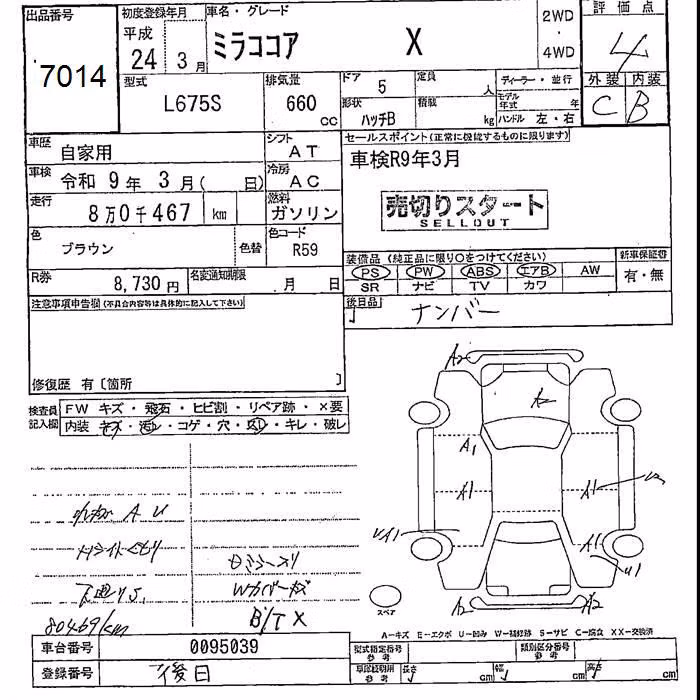 出品番号
7014
初度登録年月
平成
24 年 3 月
車名・グレード
ミラココア X
2WD
・
4WD
評価点
4
外装 内装
C B
型式
L675S
排気量
660 cc
ドア
5
定員
人
形状
ハッチB
積載
kg
ディーラー・並行
モデル年式 年
ハンドル 左・右
車歴
自家用
シフト
AT
車検
令和 9年 3月( 日)
冷房
AC
走行
8万0千467 km
燃料
ガソリン
色
ブラウン
色替
色コード
R59
R券
8,730円
名変通知期限
月 日
セールスポイント(正常に機能するものに限ります)
車検R9年3月
売切りスタート
SELLOUT
装備品(純正品に限り○をつけてください)
新車保証書
PS PW ABS エアB AW
有・無
SR ナビ TV カワ
後日品
ナンバー
注意事項申告欄(不具合内容等は具体的に記入して下さい)
修復歴 有〔箇所 〕
検査員
記入欄
FW キズ・飛石・ヒビ割・リペア跡・×要
内装 キズ・汚レ・コゲ・穴・凹・キレ・破レ
A2
A1
A1
A1
A1
A2
A2
スペア
80469km
B/T X
A－キズ E－エクボ U－凹み W－補修跡 S－サビ C－腐食 XX－交換済
車台番号
0095039
登録番号
後日
型式指定番号
参考
類別区分番号
参考
車庫証明用
参考
長さ cm
幅 cm
高さ cm